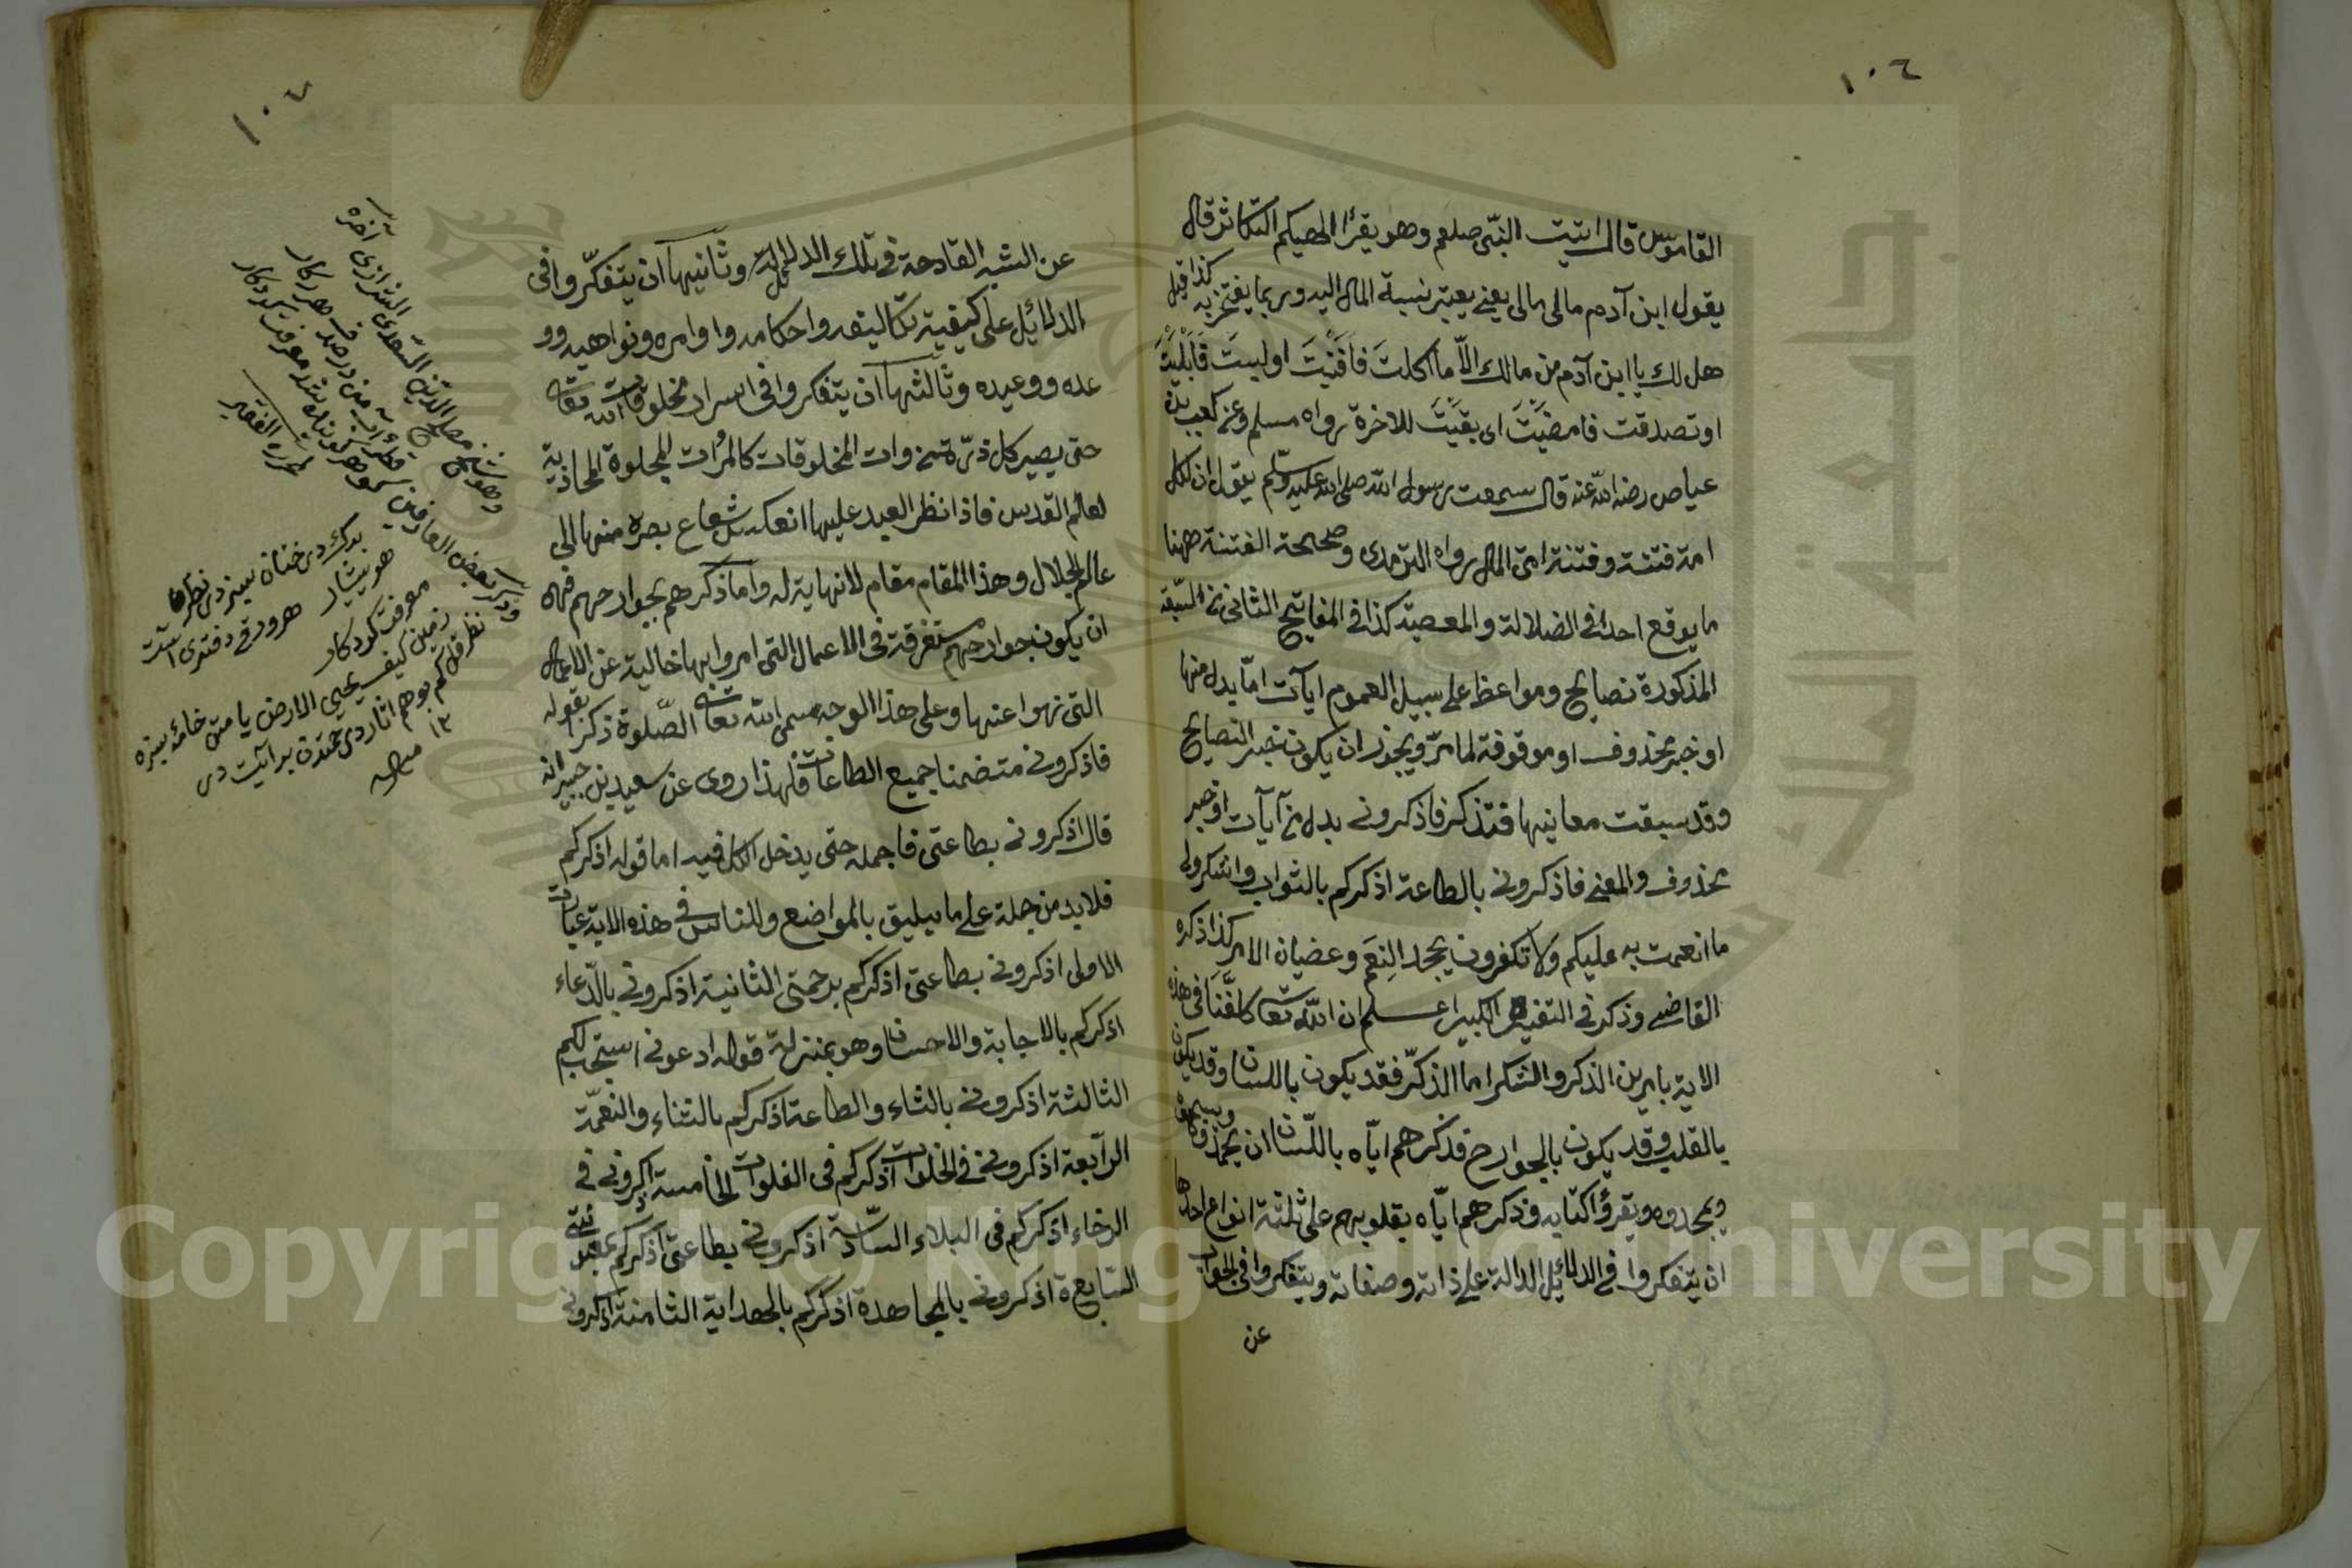 ١٠٦
القاموس قال اتيت النبّى صلعم وهو يقرأ الهيكم التكاثر قال
يقول ابن آدم مالى مالى يعنى يعتبر نسبة المال اليه وربما يفتخر به كذا قيل
هل لك يا ابن آدم من مالك الّا ما اكلتَ فَافنَيْتَ او لبستَ فَابْلَيْتَ
او تصدقت فامضَيْتَ اى بقيَتَ للاخرة رواه مسلم وعن كعب بن
عياص رضى الله عنه قال سمعت رسول الله صلى الله عليه وسلّم يقول ان لكل
امة فتنة وفتنة امتى المال رواه الترمدى وصححه الفتنة ههنا
ما يوقع احدا فى الضلالة والمعصية كذا فى المفاتيح الثانى من السّبعة
المذكورة نصايح ومواعظ على سبيل العموم آيات امّا بدل منها
او خبر محذوف او موقوفة لما مرّ ويجوز ان يكون خبر النصايح
وقد سبقت معانيها فتذكر فاذكرونى بدل من آيات او خبر
محذوف والمعنى فاذكرونى بالطاعة اذكركم بالثواب واشكرولى
ما انعمت به عليكم ولا تكفرون بجحد النِعَم وعصيان الامر كذا ذكره
القاضى وذكر فى التفسير الكبير اعلم ان الله تعالى كلّفَنَا فى هذه
الاية بامرين الذكر والشكر اما الذكّر فقد يكون باللسان وقد يكون
بالقلب وقد يكون بالجوارح فذكرهم ايّاه باللّسان ان يحمدوه ويسبحوه
ويمجدوه ويقرؤا كتابه وذكرهم ايّاه بقلوبهم على ثلثة انواع احدها
ان يتفكروا فى الدلائل الدالة على ذاته وصفاته ويتفكروا فى الجواب
عن
١٠٧
عن الشبه القادحة فى تلك الدلائل وثانيها ان يتفكّروا فى
الدلائل على كيفية تكاليفه واحكامه واوامره ونواهيه وو
عده ووعيده وثالثها ان يتفكروا فى اسرار مخلوقات الله تعالى
حتى يصير كل ذرّة من ذوات المخلوقات كالمرأت المجلوة المحاذية
لعالم القدس فاذا نظر العبد عليها انعكس شعاع بصره منها الى
عالم الجلال وهذا المقام مقام لا نهاية له واما ذكرهم بجوارحهم فهو
ان يكون جوارحهم مستغرقة فى الاعمال التى امروا بها خالية عن الاعمال
التى نهوا عنها وعلى هذا الوجه سمى الله تعالى الصّلوة ذكرا بقوله
فاذكرونى متضمنا جميع الطاعات فلهذا روى عن سعيد بن جبير انه
قال اذكرونى بطاعتى فاجمله حتى يدخل الكل فيه اما قوله اذكركم
فلا بد من حمله على ما يليق بالمواضع وللناس فى هذه الاية عبارات
الاولى اذكرونى بطاعتى اذكركم برحمتى الثانية اذكرونى بالدّعاء
اذكركم بالاجابة والاحسان وهو بمنزلة قوله ادعونى استجب لكم
الثالثة اذكرونى بالثناء والطاعة اذكركم بالثناء والنعمّة
الرّابعة اذكرونى فى الخلوات اذكركم فى الفلوات الخامسة اذكرونى فى
الرخاء اذكركم فى البلاء السّادسة اذكرونى بطاعتى اذكركم بمعونتى
السّابعة اذكرونى بالمجاهدة اذكركم بالهداية الثامنة اذكرونى
وهو الشيخ مصلح الدّين السّعدى الشيرازى
وذكر بعض العارفين
برك درختان سبز در نظر
هوشيار هر ورقى دفتريست
معرفت كردكار
Copyright © King Saud University